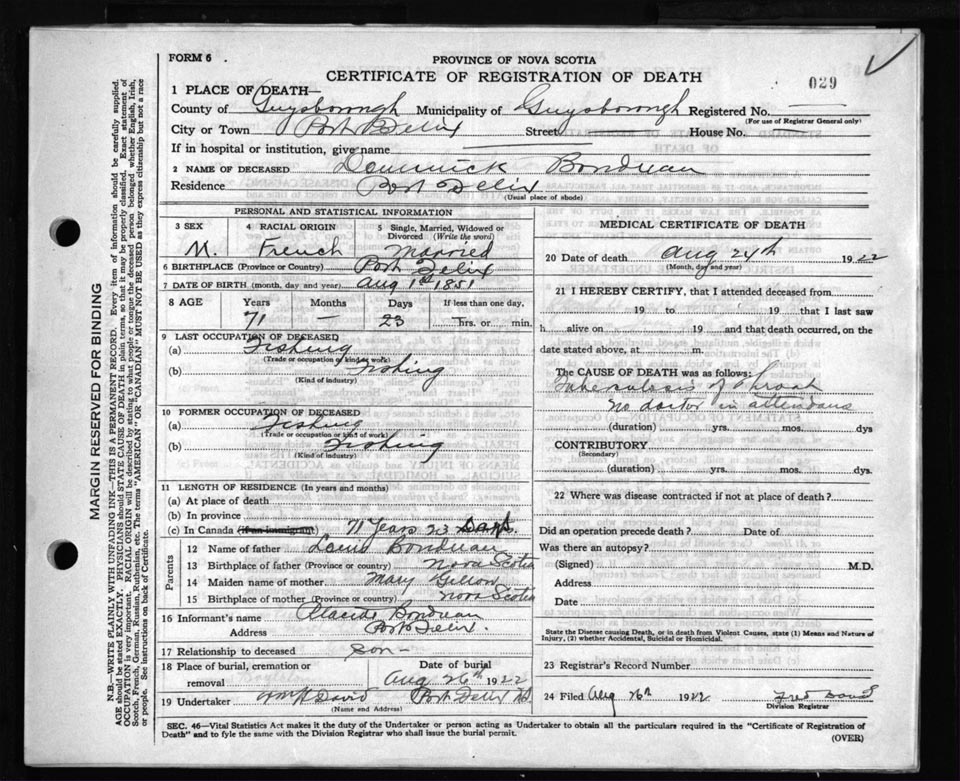 FORM 6 .
PROVINCE OF NOVA SCOTIA
CERTIFICATE OF REGISTRATION OF DEATH
029
1 PLACE OF DEATH—
County of Guysborough Municipality of Guysborough Registered No.
(For use of Registrar General only)
City or Town Port Felix Street House No.
If in hospital or institution, give name
2 NAME OF DECEASED Dominick
Residence Port Felix
(Usual place of abode)
PERSONAL AND STATISTICAL INFORMATION
3 SEX 4 RACIAL ORIGIN 5 Single, Married, Widowed or Divorced (Write the word)
M. French Married
6 BIRTHPLACE (Province or Country) Port Felix
7 DATE OF BIRTH (month, day and year) Aug 1st 1851
8 AGE Years Months Days If less than one day,
71 — 23 hrs. or min.
9 LAST OCCUPATION OF DECEASED
(a) Fishing
(Trade or occupation or kind of work)
(b) Fishing
(Kind of industry)
10 FORMER OCCUPATION OF DECEASED
(a) Fishing
(Trade or occupation or kind of work)
(b) Fishing
(Kind of industry)
11 LENGTH OF RESIDENCE (In years and months)
(a) At place of death
(b) In province
(c) In Canada (if an immigrant) 71 Years 23 Days
Parents
12 Name of father Louis
13 Birthplace of father (Province or country) Nova Scotia
14 Maiden name of mother Mary
15 Birthplace of mother (Province or country) Nova Scotia
16 Informant's name Placide
Address Port Felix.
17 Relationship to deceased Son -
18 Place of burial, cremation or removal Date of burial
Aug 26th 1922
19 Undertaker David Port Felix NS
(Name and Address)
MEDICAL CERTIFICATE OF DEATH
20 Date of death Aug 24th 1922
(Month, day and year)
21 I HEREBY CERTIFY, that I attended deceased from
19 to 19 that I last saw
h alive on 19 and that death occurred, on
date stated above, at m.
The CAUSE OF DEATH was as follows:
Tuberculosis of throat
No doctor in attendans
(duration) yrs. mos. dys
CONTRIBUTORY
(Secondary)
(duration) yrs. mos. dys.
22 Where was disease contracted if not at place of death?
Did an operation precede death? Date of
Was there an autopsy?
(Signed) M.D.
Address
Date
State the Disease causing Death, or in death from Violent Causes, state (1) Means and Nature of Injury, (2) whether Accidental, Suicidal or Homicidal.
23 Registrar's Record Number
24 Filed Aug 26th 1922 Fred David
Division Registrar
SEC. 46—Vital Statistics Act makes it the duty of the Undertaker or person acting as Undertaker to obtain all the particulars required in the "Certificate of Registration of
Death" and to fyle the same with the Division Registrar who shall issue the burial permit.
(OVER)
MARGIN RESERVED FOR BINDING
N.B.—WRITE PLAINLY WITH UNFADING INK—THIS IS A PERMANENT RECORD. Every item of information should be carefully supplied.
AGE should be stated EXACTLY. PHYSICIANS should STATE CAUSE OF DEATH in plain terms, so that it may be properly classified. Exact statement of
OCCUPATION is very important. RACIAL ORIGIN will be described by stating to what people or tongue the deceased person belonged whether English, Irish,
Scotch, French, German, Russian, Ruthenian, etc. The terms "AMERICAN" OR "CANADIAN" MUST NOT BE USED as they express citizenship but not a race
or people. See instructions on back of Certificate.